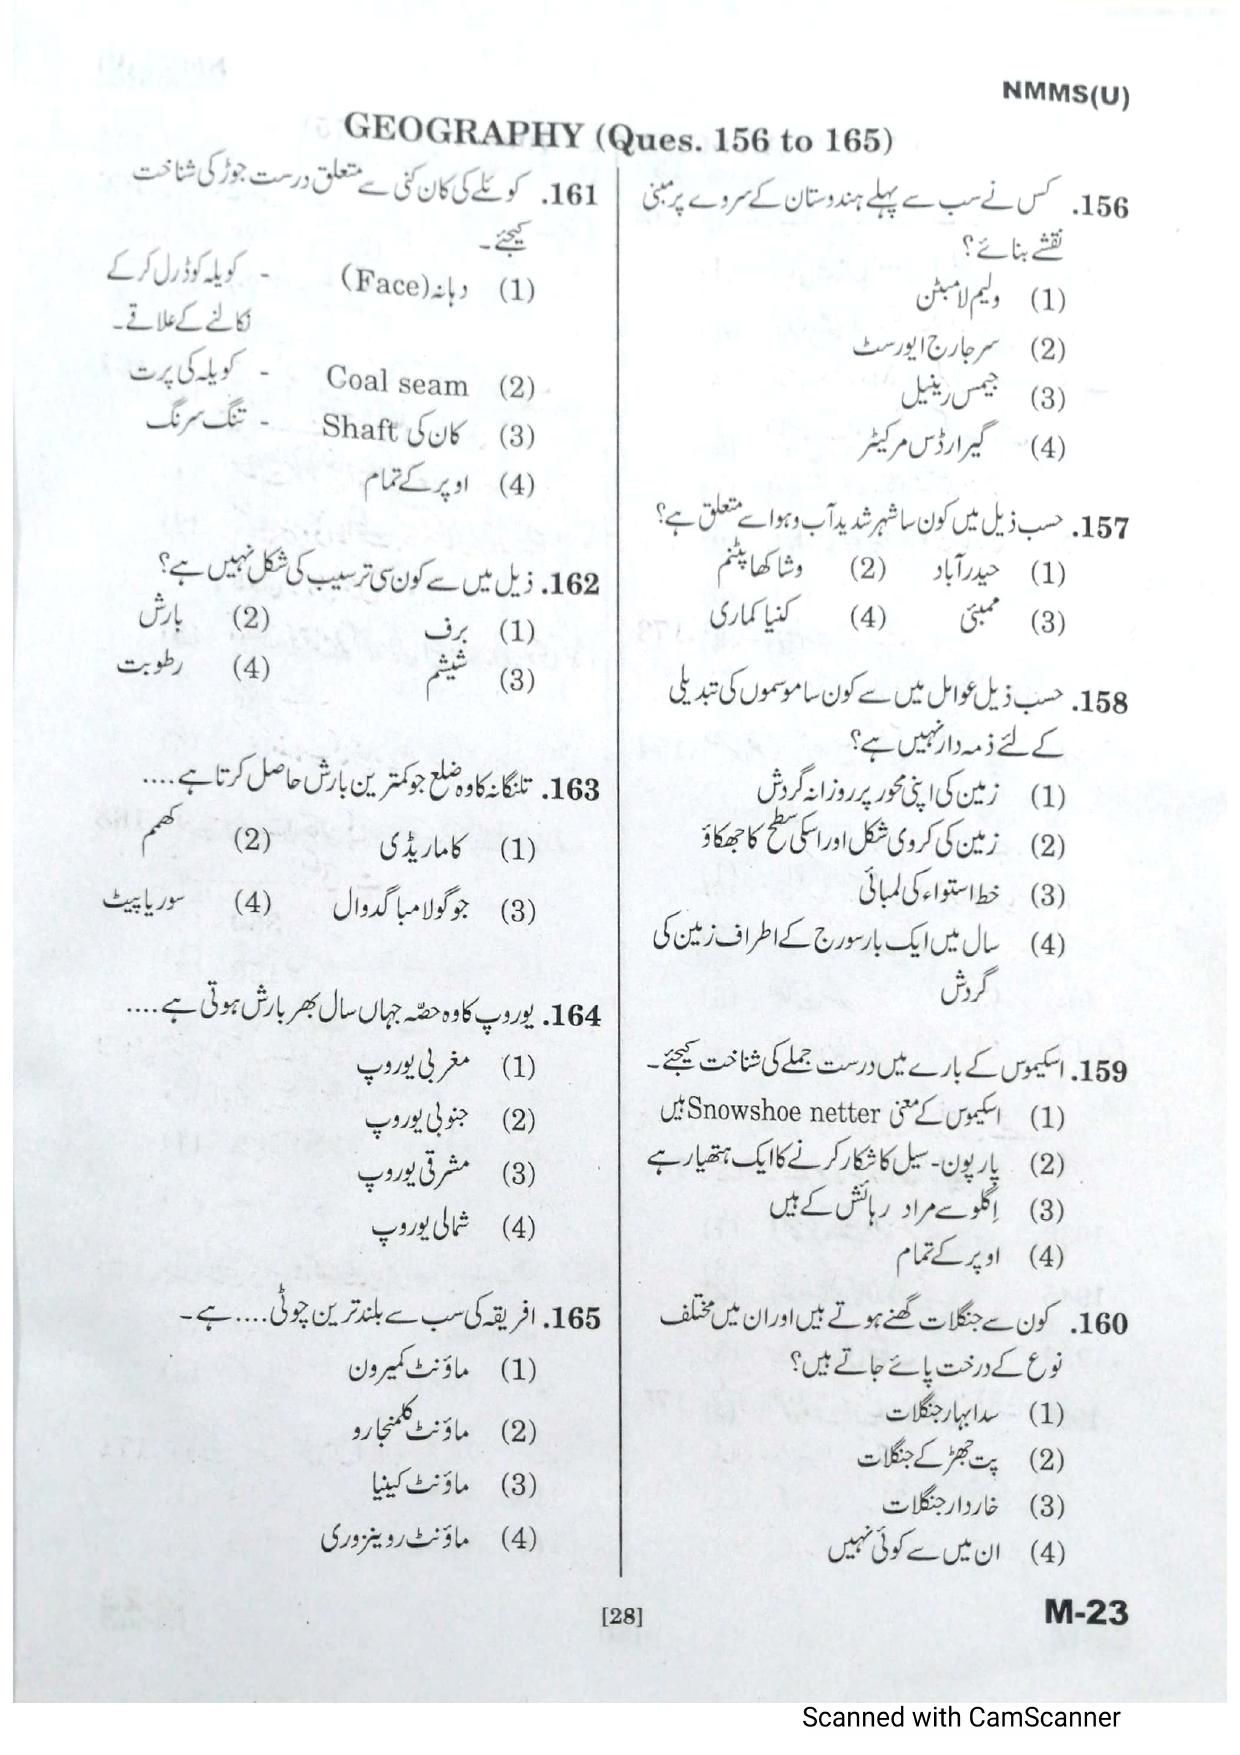 NMMS(U)
GEOGRAPHY (Ques. 156 to 165)
156. کس نے سب سے پہلے ہندوستان کے سروے پر مبنی
نقشے بنائے؟
(1) ولیم لامبٹن
(2) سر جارج ایورسٹ
(3) جیمس رینیل
(4) گیرارڈس مرکیٹر
157. حسب ذیل میں کون سا شہر شدید آب و ہوا سے متعلق ہے؟
(1) حیدرآباد (2) وشاکھاپٹنم
(3) ممبئی (4) کنیا کماری
158. حسب ذیل عوامل میں سے کون سا موسموں کی تبدیلی
کے لئے ذمہ دار نہیں ہے؟
(1) زمین کی اپنی محور پر روزانہ گردش
(2) زمین کی کروی شکل اور اسکی سطح کا جھکاؤ
(3) خط استواء کی لمبائی
(4) سال میں ایک بار سورج کے اطراف زمین کی
گردش
159. اسکیموس کے بارے میں درست جملے کی شناخت کیجئے۔
(1) اسکیموس کے معنی Snowshoe netter ہیں
(2) ہارپون - سیل کا شکار کرنے کا ایک ہتھیار ہے
(3) اِگلو سے مراد رہائش کے ہیں
(4) اوپر کے تمام
160. کون سے جنگلات گھنے ہوتے ہیں اور ان میں مختلف
نوع کے درخت پائے جاتے ہیں؟
(1) سدا بہار جنگلات
(2) پت جھڑ کے جنگلات
(3) خاردار جنگلات
(4) ان میں سے کوئی نہیں
161. کوئلے کی کان کنی سے متعلق درست جوڑ کی شناخت
کیجئے۔
(1) دہانہ (Face) - کویلہ کو ڈرل کر کے
نکالنے کے علاقے۔
(2) Coal seam - کویلہ کی پرت
(3) کان کی Shaft - تنگ سرنگ
(4) اوپر کے تمام
162. ذیل میں سے کون سی ترسیب کی شکل نہیں ہے؟
(1) برف (2) بارش
(3) شیشم (4) رطوبت
163. تلنگانہ کا وہ ضلع جو کمترین بارش حاصل کرتا ہے....
(1) کاماریڈی (2) کھمم
(3) جوگولامبا گدوال (4) سوریا پیٹ
164. یوروپ کا وہ حصّہ جہاں سال بھر بارش ہوتی ہے....
(1) مغربی یوروپ
(2) جنوبی یوروپ
(3) مشرقی یوروپ
(4) شمالی یوروپ
165. افریقہ کی سب سے بلند ترین چوٹی.... ہے۔
(1) ماؤنٹ کمیرون
(2) ماؤنٹ کلمنجارو
(3) ماؤنٹ کینیا
(4) ماؤنٹ روینزوری
[28]
M-23
Scanned with CamScanner